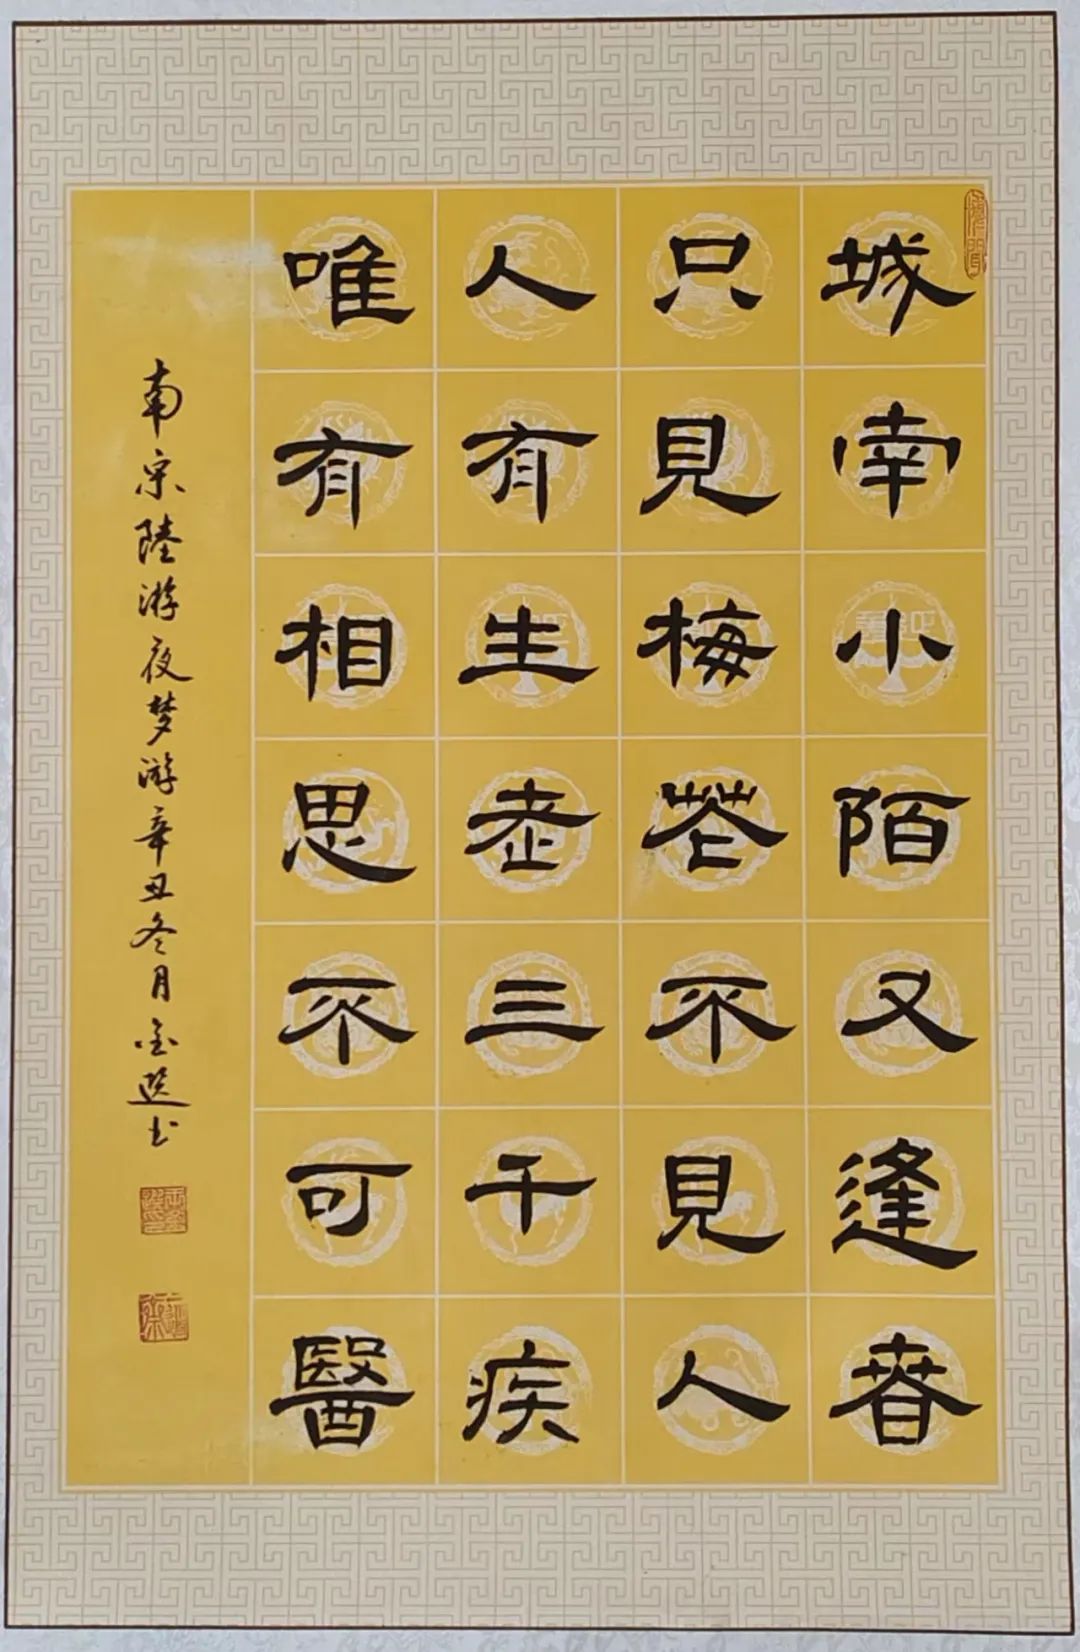 城南小陌又逢春
只見梅花不見人
人有生老三千疾
唯有相思不可醫
南宋陸游夜梦游辛丑冬月金選书